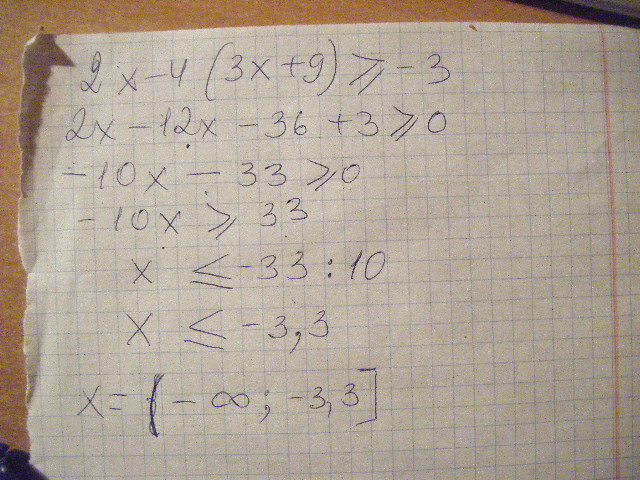 2x-4(3x+9)⩾-3
2x-12x-36+3⩾0
-10x-33⩾0
-10x⩾33
x≤-33:10
x≤-3,3
x=(-∞;-3,3]